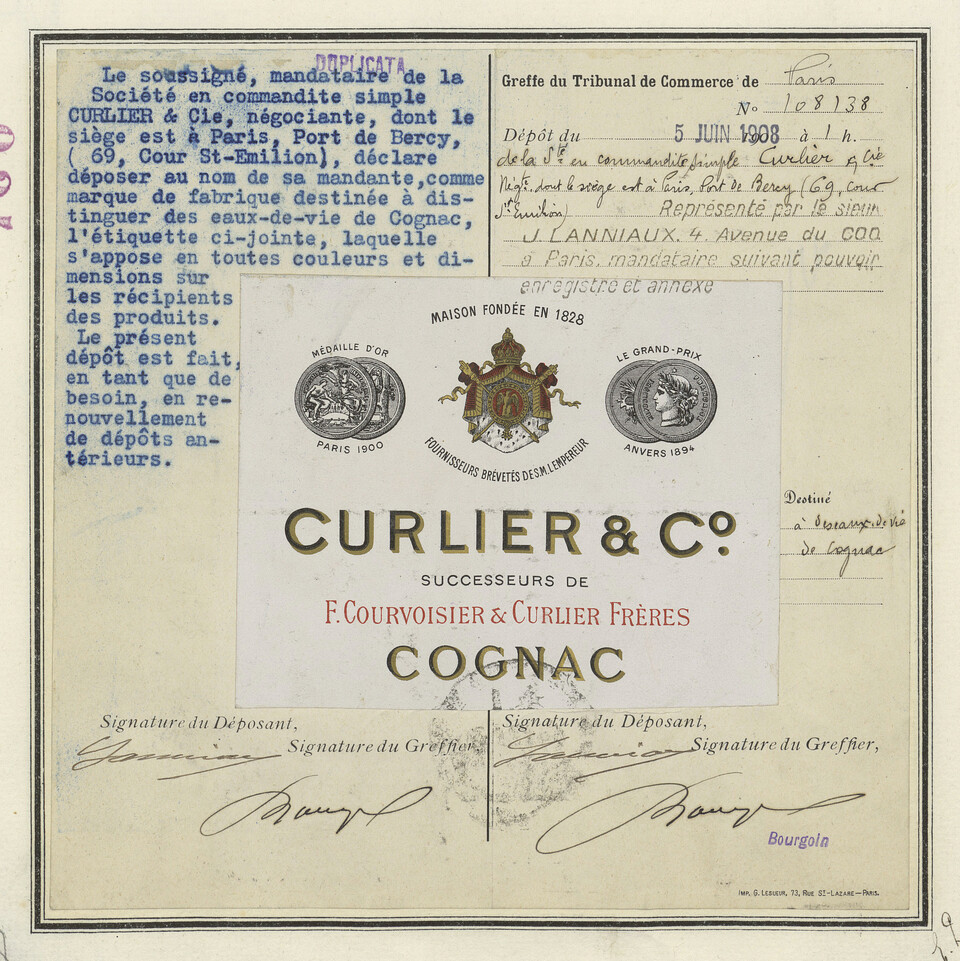 DUPLICATA
Le soussigné, mandataire de la
Société en commandite simple
CURLIER & Cie, négociante, dont le
siège est à Paris, Port de Bercy,
( 69, Cour St-Emilion), déclare
déposer au nom de sa mandante,comme
marque de fabrique destinée à dis-
tinguer des eaux-de-vie de Cognac,
l'étiquette ci-jointe, laquelle
s'appose en toutes couleurs et di-
mensions sur
les récipients
des produits.
Le présent
dépôt est fait,
en tant que de
besoin, en re-
nouvellement
de dépôts an-
térieurs.
Greffe du Tribunal de Commerce de Paris
No 108138
Dépôt du 5 JUIN 1908 à 1 h.
de la Sté en commandite simple Curlier & Cie
Négte. dont le siège est à Paris, Port de Bercy (69, cour
St Emilion) Représenté par le sieur
J. LANNIAUX. 4. Avenue du COQ
à Paris, mandataire suivant pouvoir
enregistré et annexé
MAISON FONDÉE EN 1828
MÉDAILLE D'OR
PARIS 1900
LE GRAND-PRIX
ANVERS 1894
FOURNISSEURS BRÉVETÉS DE S.M. L'EMPEREUR
CURLIER & Co.
SUCCESSEURS DE
F. COURVOISIER & CURLIER FRÈRES
COGNAC
Destiné
à des eaux-de-vie
de Cognac
Signature du Déposant,
Signature du Greffier,
Signature du Déposant,
Signature du Greffier,
Bourgoin
IMP. G. LESUEUR, 73, RUE ST-LAZARE—PARIS.